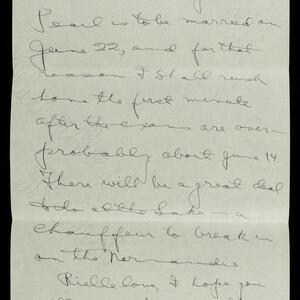 Pearl is to be married on
June 22, and for that
reason I shall rush
home the first minute
after the exams are over-
probably about June 14.
There will be a great deal
to do at the Lake - a
chauffeur to break in
on the Normandie.
I hope you